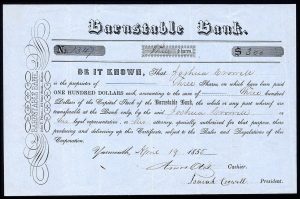 Barnstable Bank.
No. 1849 Three Shares, $ 300
BE IT KNOWN, That Joshua Crowell
is the proprietor of Three Shares, on which have been paid
ONE HUNDRED DOLLARS each, amounting to the sum of Three Hundred
Dollars of the Capital Stock of the Barnstable Bank, the which or any part whereof are
transferable at the Bank only, by the said Joshua Crowell or
his legal representative, or his attorney, specially authorized for that purpose, then
producing and delivering up this Certificate, subject to the Rules and Regulations of this
Corporation.
Yarmouth, April 19 1855
Amos Otis, Cashier.
Isaiah Crowell President.